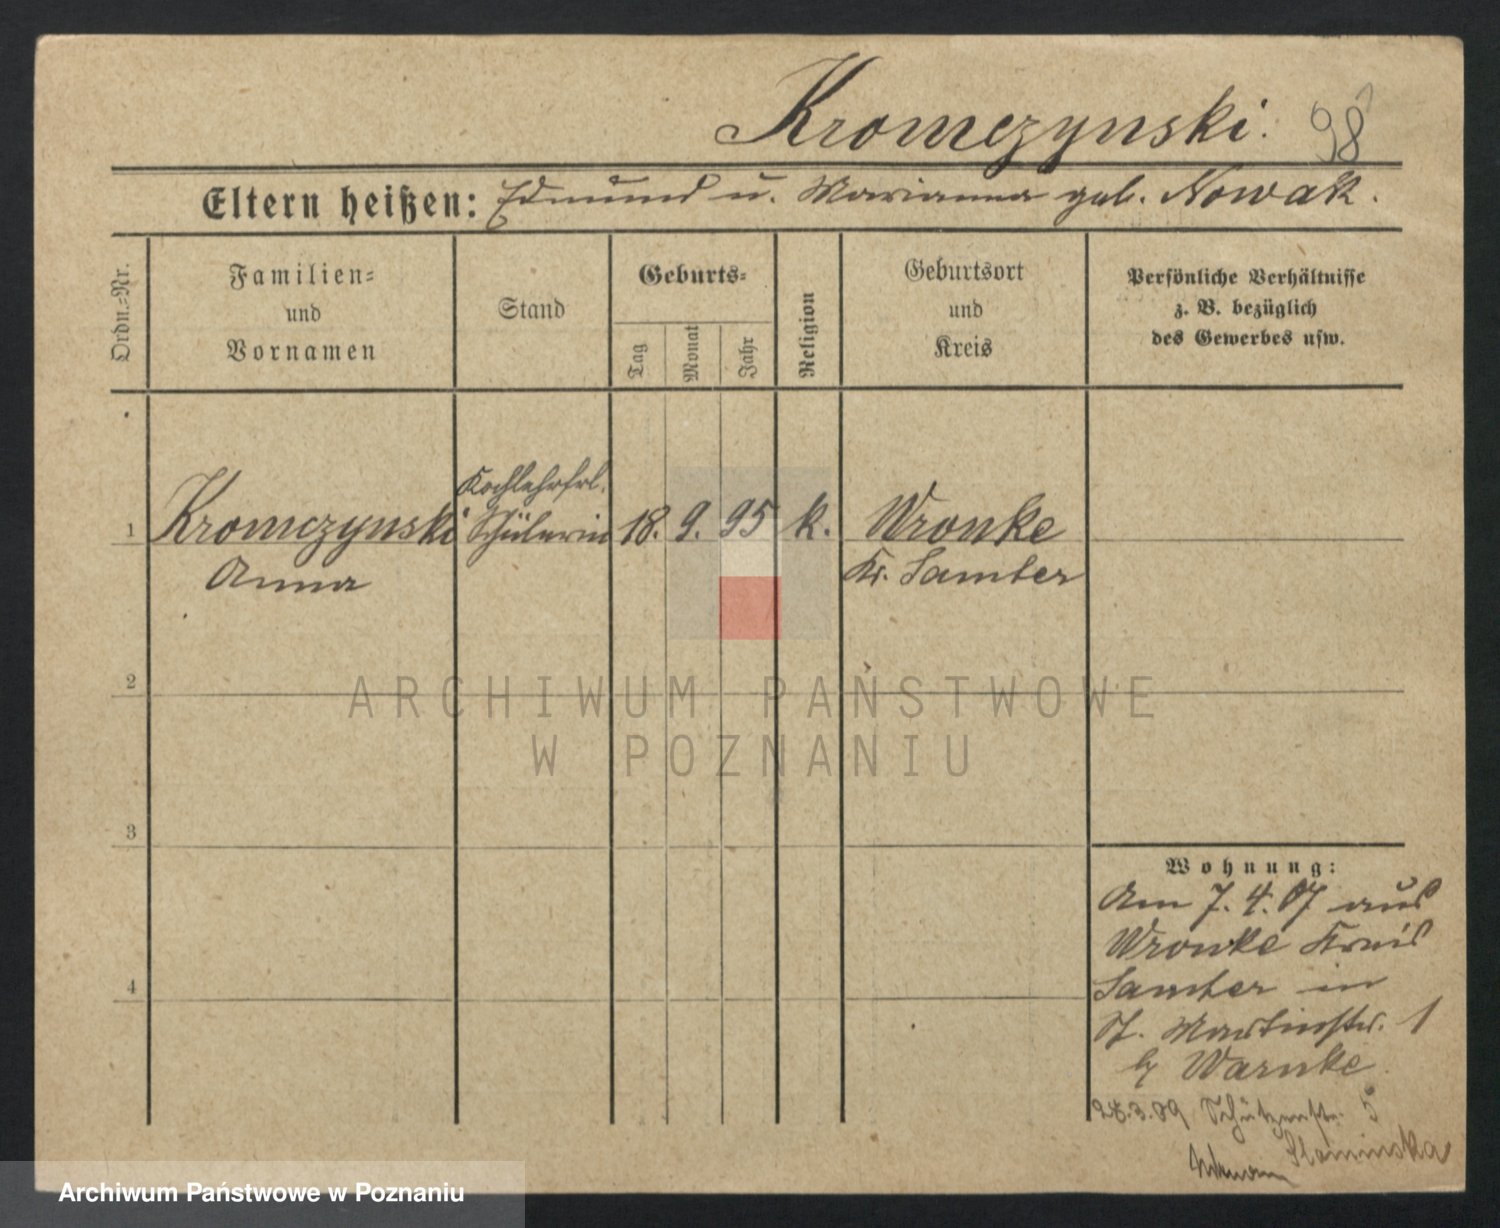 Kromczynski. 98
Eltern heißen: Edmund u. Marianna geb. Nowak.
Ordn.-Nr.
Familien-
und
Vornamen
Stand
Geburts-
Tag
Monat
Jahr
Religion
Geburtsort
und
Kreis
Persönliche Verhältnisse
z. B. bezüglich
des Gewerbes usw.
Kochlehrfrl.
1 Kromczynski Schülerin 18. 9. 95 k. Wronke
Anna Kr. Samter
2
ARCHIWUM PAŃSTWOWE
W POZNANIU
3
4
Wohnung:
Am 7. 4. 07 aus
Wronke Kreis
Samter in
St. Martinstr. 1
b/ Warnke
28.3.09 Schützenstr. 5
Slominska
Archiwum Państwowe w Poznaniu